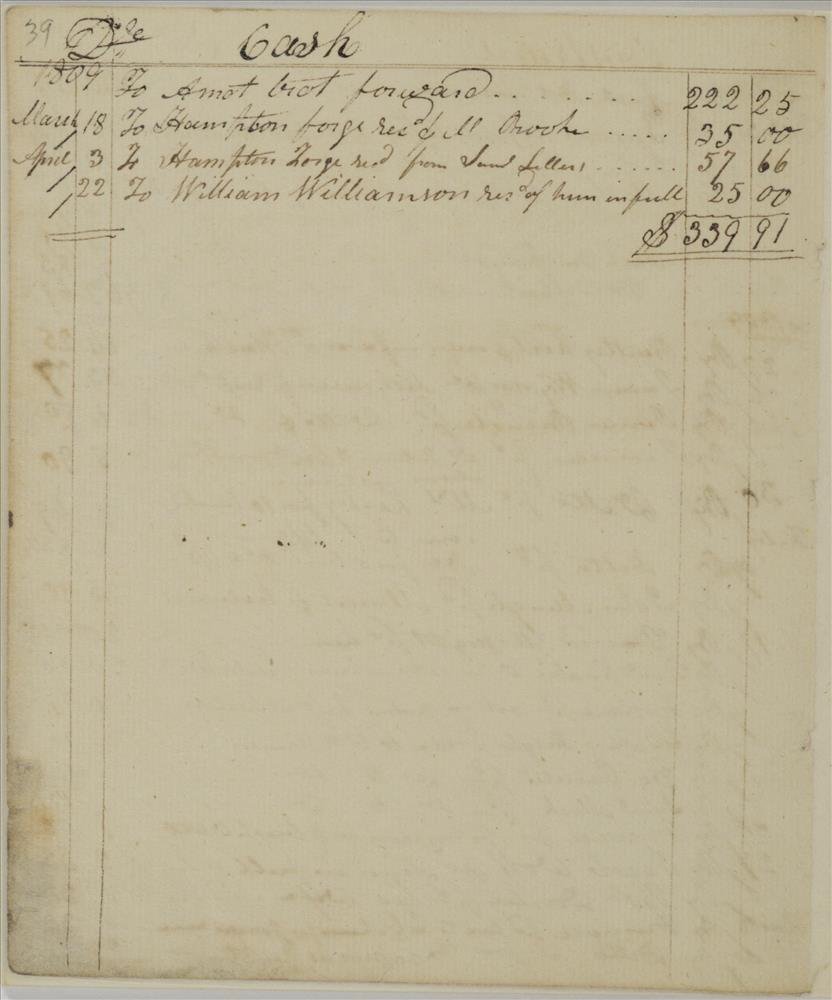 39 Dr Cash
1809 To Amot brot forward . . . . . . . . 222 25
March 18 To Hampton forge recd Brooke . . . . . 35 00
April 3 To Hampton Forge recd from . . . . . . 57 66
22 To William Williamson recd of him in full 25 00
$ 339 91